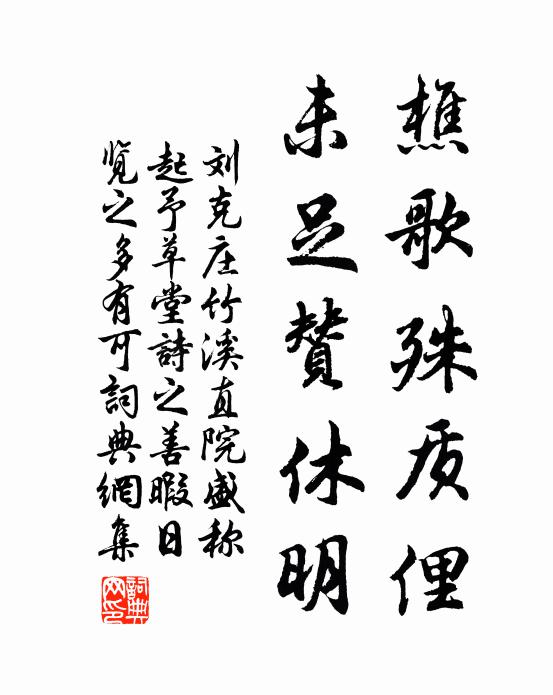 樵歌殊质俚
未足赞休明
刘克庄竹溪直院盛称
起予草堂詩之善暇日
覽之多有可詞典網集
詞典网印